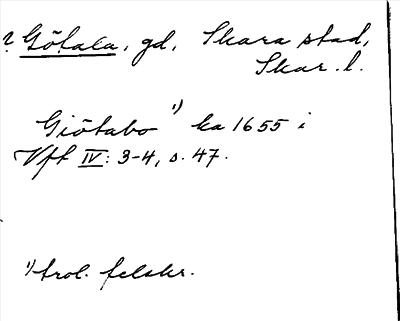 ? Götala, gd, Skara stad,
Skar. l.
Giötabo ¹) ka 1655 i
Vft IV: 3-4, s. 47.
¹) trol. felskr.